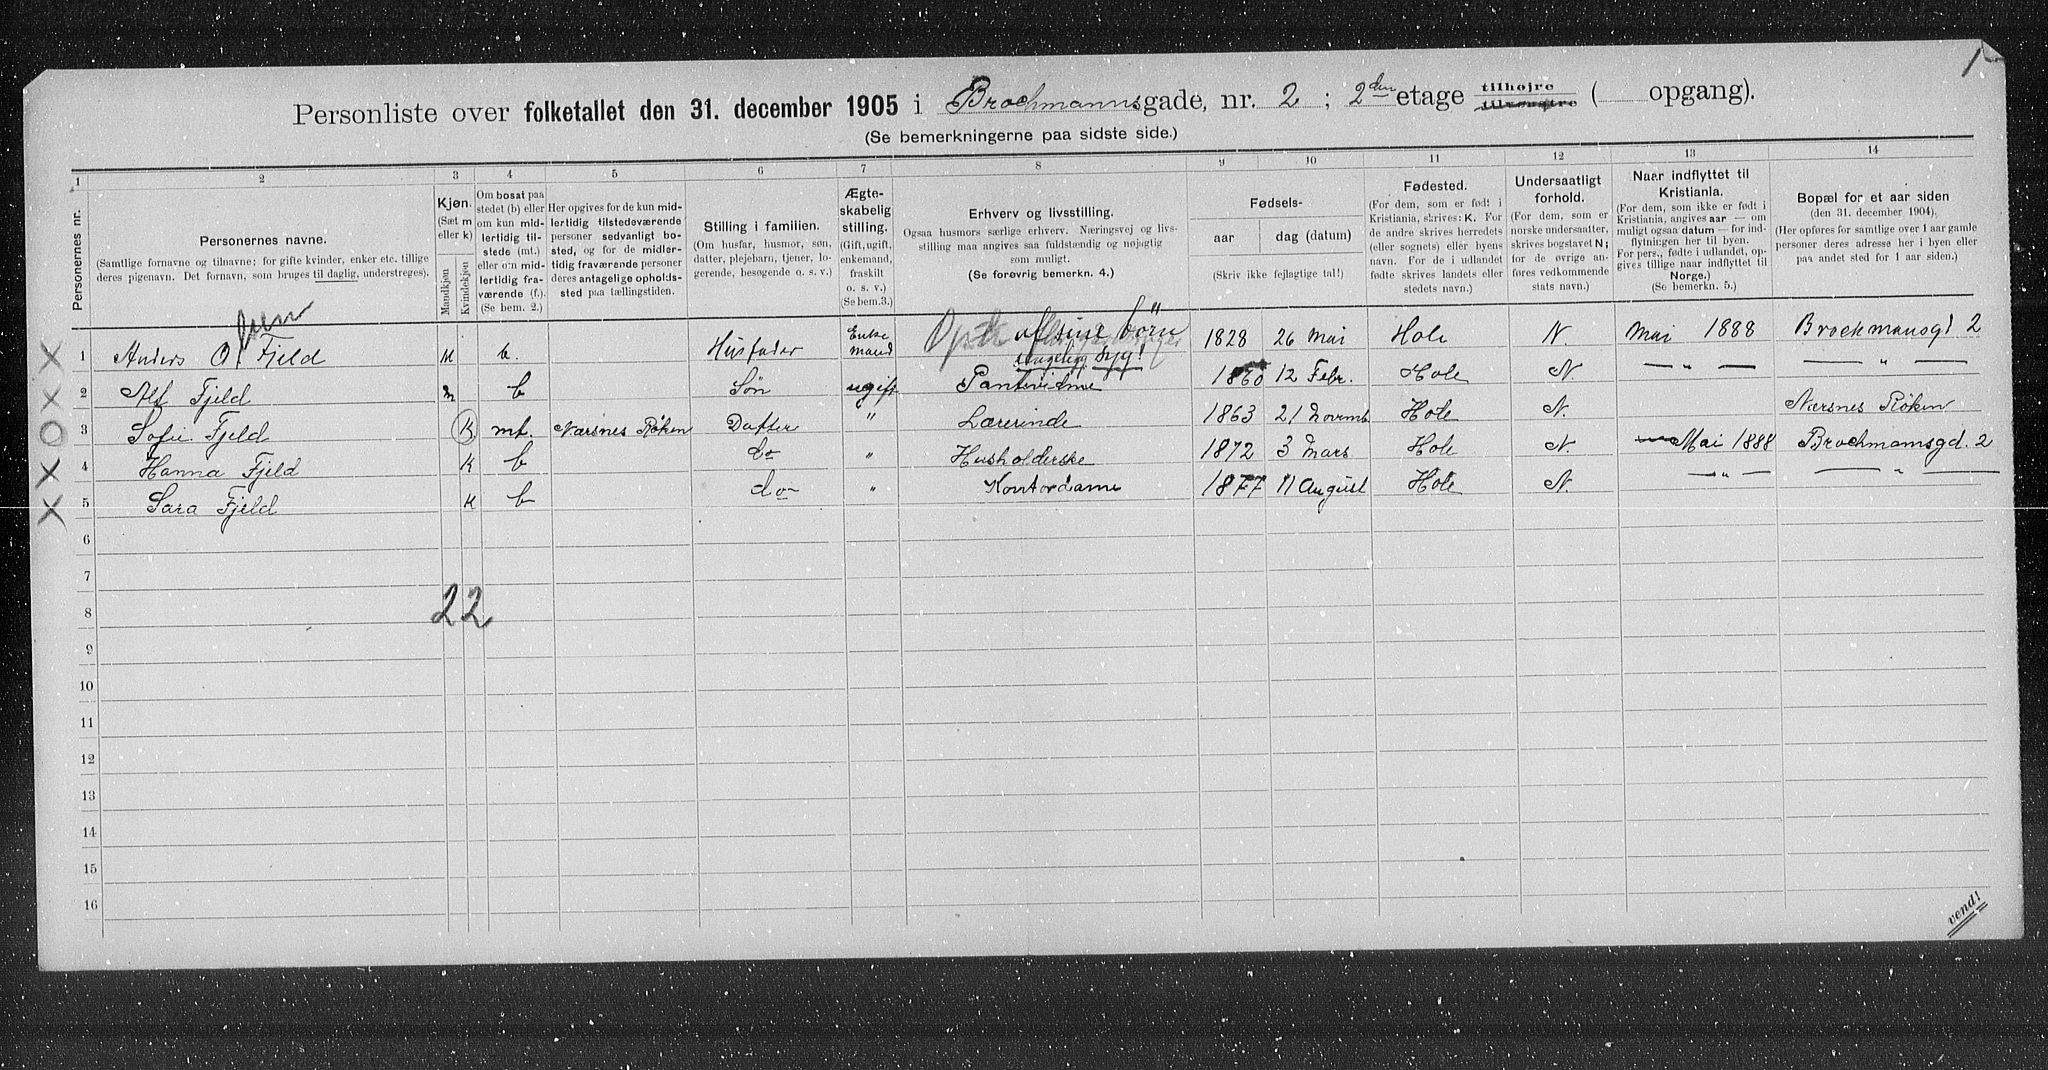 1
Personliste over folketallet den 31. december 1905 i Brochmannsgade, nr. 2 ; 2den etage tilhøjre tilvenstre ( opgang).
(Se bemerkningerne paa sidste side.)
1 2 3 4 5 6 7 8 9 10 11 12 13 14
Personernes nr.
Personernes navne.
(Samtlige fornavne og tilnavne; for gifte kvinder, enker etc. tillige
deres pigenavn. Det fornavn, som bruges til daglig, understreges).
Kjøn.
(Sæt m
eller k)
Mandkjøn
Kvindekjøn
Om bosat paa
stedet (b) eller
om kun mid-
lertidig til-
stede (mt.)
eller om mid-
lertidig fra-
værende (f.)
(Se bem. 2.)
Her opgives for de kun mid-
lertidig tilstedeværende
personer sedvanligt bo-
sted, og for de midler-
tidig fraværende personer
deres antagelige opholds-
sted paa tællingstiden.
Stilling i familien.
(Om husfar, husmor, søn,
datter, plejebarn, tjener, lo-
gerende, besøgende o. s. v.)
Ægte-
skabelig
stilling.
(Gift, ugift,
enkemand,
fraskilt
o. s. v.)
(Se bem.3.)
Erhverv og livsstilling.
Ogsaa husmors særlige erhverv. Næringsvej og livs-
stilling maa angives saa fuldstændig og nøjagtig
som muligt.
(Se forøvrig bemerkn. 4.)
Fødsels-
aar
dag (datum)
(Skriv ikke fejlagtige tal!)
Fødested.
(For dem, som er født i
Kristiania, skrives: K. For
de andre skrives herredets
(eller sognets) eller byens
navn. For de i udlandet
fødte skrives landets eller
stedets navn.)
Undersaatligt
forhold.
(For dem, som er
norske undersaatter,
skrives bogstavet N;
for de øvrige an-
føres vedkommende
stats navn.)
Naar indflyttet til
Kristiania.
(For dem, som ikke er født i
Kristiania, angives aar — om
muligt ogsaa datum — for ind-
flytningen her til byen.
For pers., fødte i udlandet, op-
gives tillige naar indflyttet til
Norge.)
(Se bemerkn. 5.)
Bopæl for et aar siden
(den 31. december 1904).
(Her opføres for samtlige over 1 aar gamle
personer deres adresse her i byen eller
paa andet sted for 1 aar siden.)
X 1 Anders O Fjeld M b. Husfader Enke mand af sine börn syg! 1828 26 Mai Hole N. Mai 1888 Brockmansgd 2
X 2 Alf Fjeld m b Søn ugift 1860 12 Febr. Hole N — „ — — „ —
O 3 Sofie Fjeld K mt. Nærsnes Røken Datter „ Lærerinde 1863 21 Novemb Hole N. Nærsnes Røken
X 4 Hanna Fjeld K b do „ Husholderske 1872 3 Mars Hole N. Mai 1888 Brochmannsgd. 2
X 5 Sara Fjeld K b do „ Kontordame 1877 11 August Hole N. — „ — — „ —
6
7
22
8
9
10
11
12
13
14
15
16
vend!